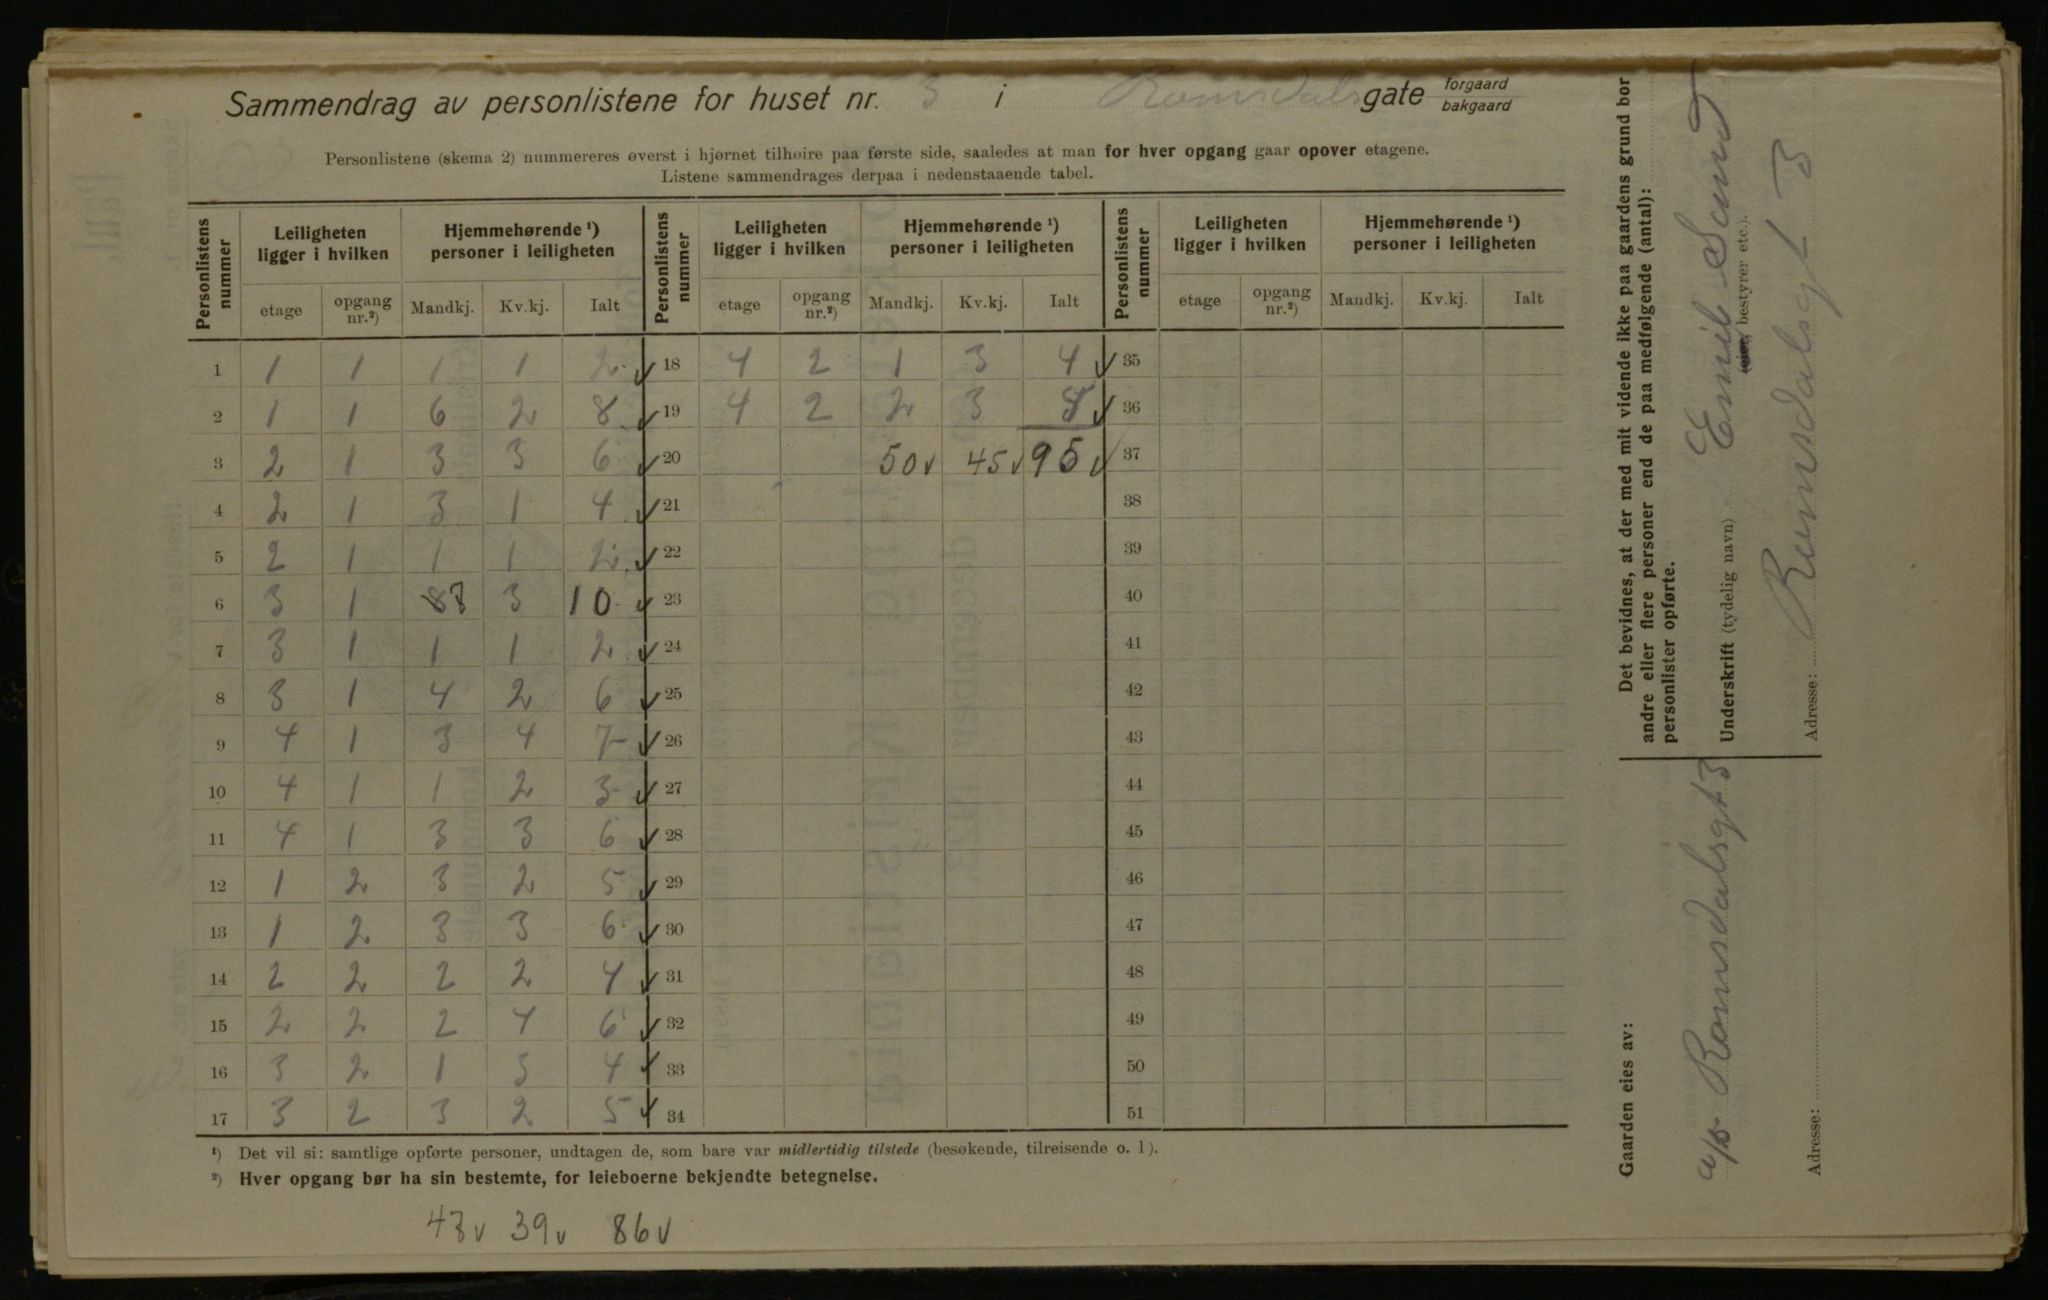 Sammendrag av personlistene for huset nr. 3 i Romsdalsgate forgaard bakgaard
Personlistene (skema 2) nummereres øverst i hjørnet tilhøire paa første side, saaledes at man for hver opgang gaar opover etagene.
Listene sammendrages derpaa i nedenstaaende tabel.
Personlistens nummer | Leiligheten ligger i hvilken | Hjemmehørende ¹) personer i leiligheten | Personlistens nummer | Leiligheten ligger i hvilken | Hjemmehørende ¹) personer i leiligheten | Personlistens nummer | Leiligheten ligger i hvilken | Hjemmehørende ¹) personer i leiligheten
etage | opgang nr.²) | Mandkj. | Kv.kj. | Ialt | etage | opgang nr.²) | Mandkj. | Kv.kj. | Ialt | etage | opgang nr.²) | Mandkj. | Kv.kj. | Ialt
1 1 1 1 1 2 ✓ 18 4 2 1 3 4 ✓ 35
2 1 1 6 2 8 ✓ 19 4 2 2 3 ✓ 36
3 2 1 3 3 6 ✓ 20 50 ✓ 45 ✓ 95 ✓ 37
4 2 1 3 1 4 ✓ 21 38
5 2 1 1 1 2 ✓ 22 39
6 3 1 3 10 ✓ 23 40
7 3 1 1 1 2 ✓ 24 41
8 3 1 4 2 6 ✓ 25 42
9 4 1 3 4 7 ✓ 26 43
10 4 1 1 2 3 ✓ 27 44
11 4 1 3 3 6 ✓ 28 45
12 1 2 3 2 5 ✓ 29 46
13 1 2 3 3 6 ✓ 30 47
14 2 2 2 2 4 ✓ 31 48
15 2 2 2 4 6 ✓ 32 49
16 3 2 1 3 4 ✓ 33 50
17 3 2 3 2 5 ✓ 34 51
¹) Det vil si: samtlige opførte personer, undtagen de, som bare var midlertidig tilstede (besøkende, tilreisende o. l).
²) Hver opgang bør ha sin bestemte, for leieboerne bekjendte betegnelse.
47 ✓ 39 ✓ 86 ✓
Det bevidnes, at der med mit vidende ikke paa gaardens grund bor
andre eller flere personer end de paa medfølgende (antal):
personlister opførte.
Underskrift (tydelig navn) Emil Sund
(eier, bestyrer etc.).
Adresse: Romsdalsgt 3
Gaarden eies av:
a/s Romsdalsgt 3
Adresse: